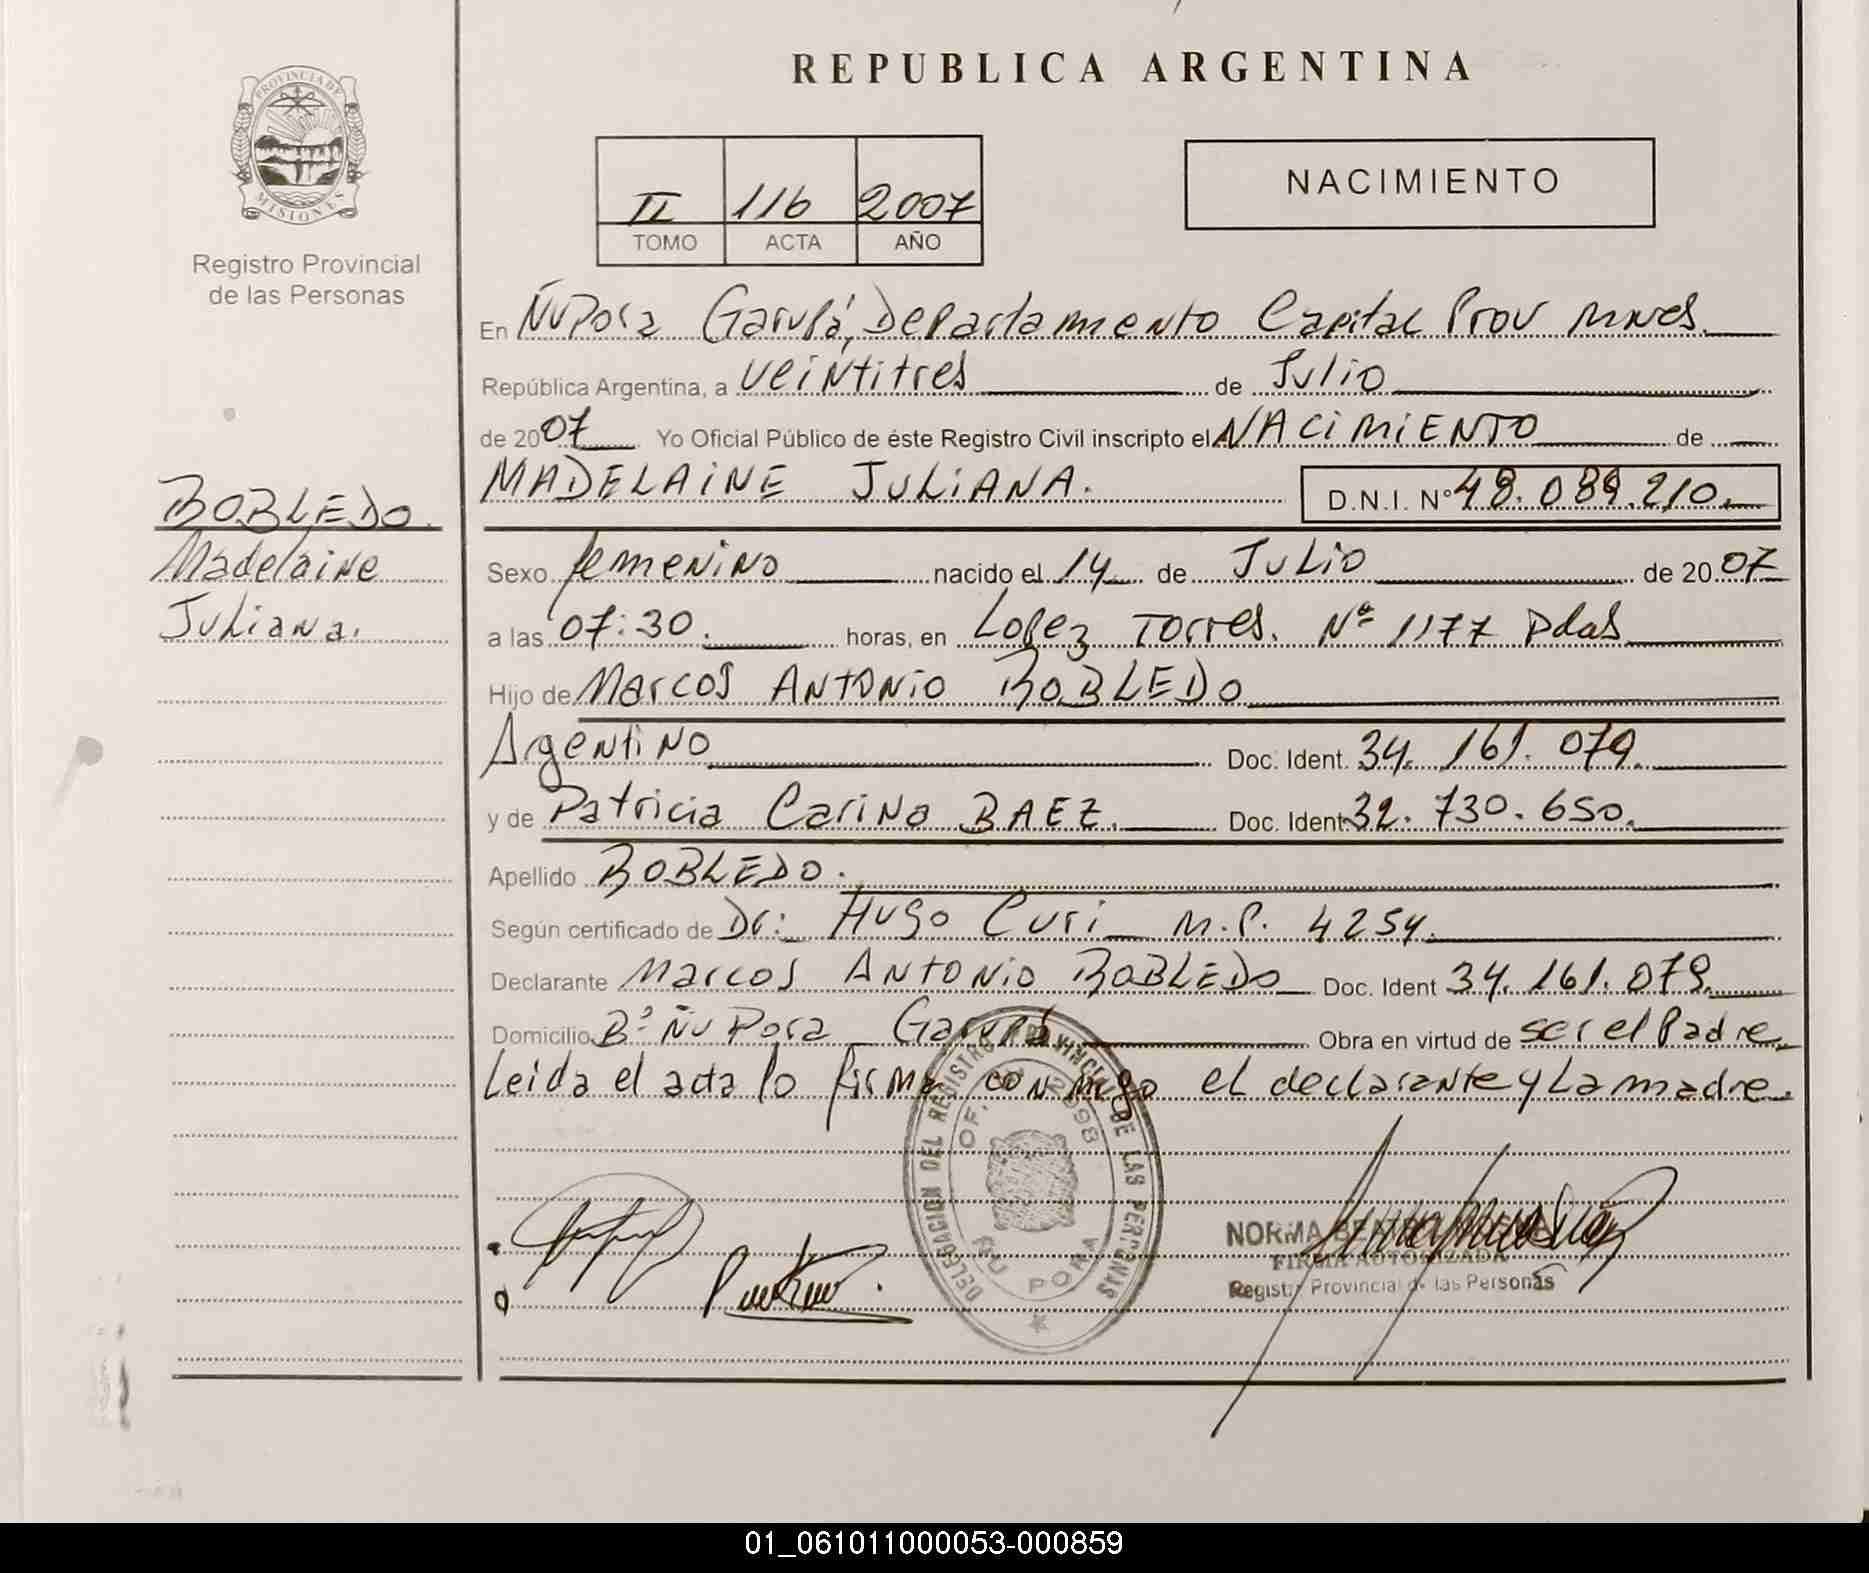 PROVINCIA DE
MISIONES
Registro Provincial
de las Personas
BOBLEDO.
Madelaine
Juliana.
REPUBLICA ARGENTINA
II 116 2007
TOMO ACTA AÑO
NACIMIENTO
En Ñu Pora Garupá, Departamento Capital Prov Mnes.
República Argentina, a veintitres de Julio
de 2007 Yo Oficial Público de éste Registro Civil inscripto el NACIMIENTO de
MADELAINE JULIANA. D.N.I. Nº 48.089.210.
Sexo femenino nacido el 14 de Julio de 2007
a las 07:30. horas, en Lopez Torres. Nº 1177 Pdas
Hijo de Marcos ANTONIO BOBLEDO
Argentino Doc. Ident. 34.161.079.
y de Patricia Carina BAEZ. Doc. Ident 32.730.650.
Apellido BOBLEDO.
Según certificado de Dr: Hugo Curi M.P. 4254.
Declarante Marcos ANTONIO BOBLEDO Doc. Ident 34.161.079.
Domicilio Bº Ñu Pora Garupá Obra en virtud de ser el Padre
Leida el acta lo firma conmigo el declarante y La madre.
DELEGACION DEL REGISTRO PROVINCIAL DE LAS PERSONAS
OF. 2098
ÑU PORA
NORMA
FIRMA AUTORIZADA
Registro Provincial de las Personas
01_061011000053-000859